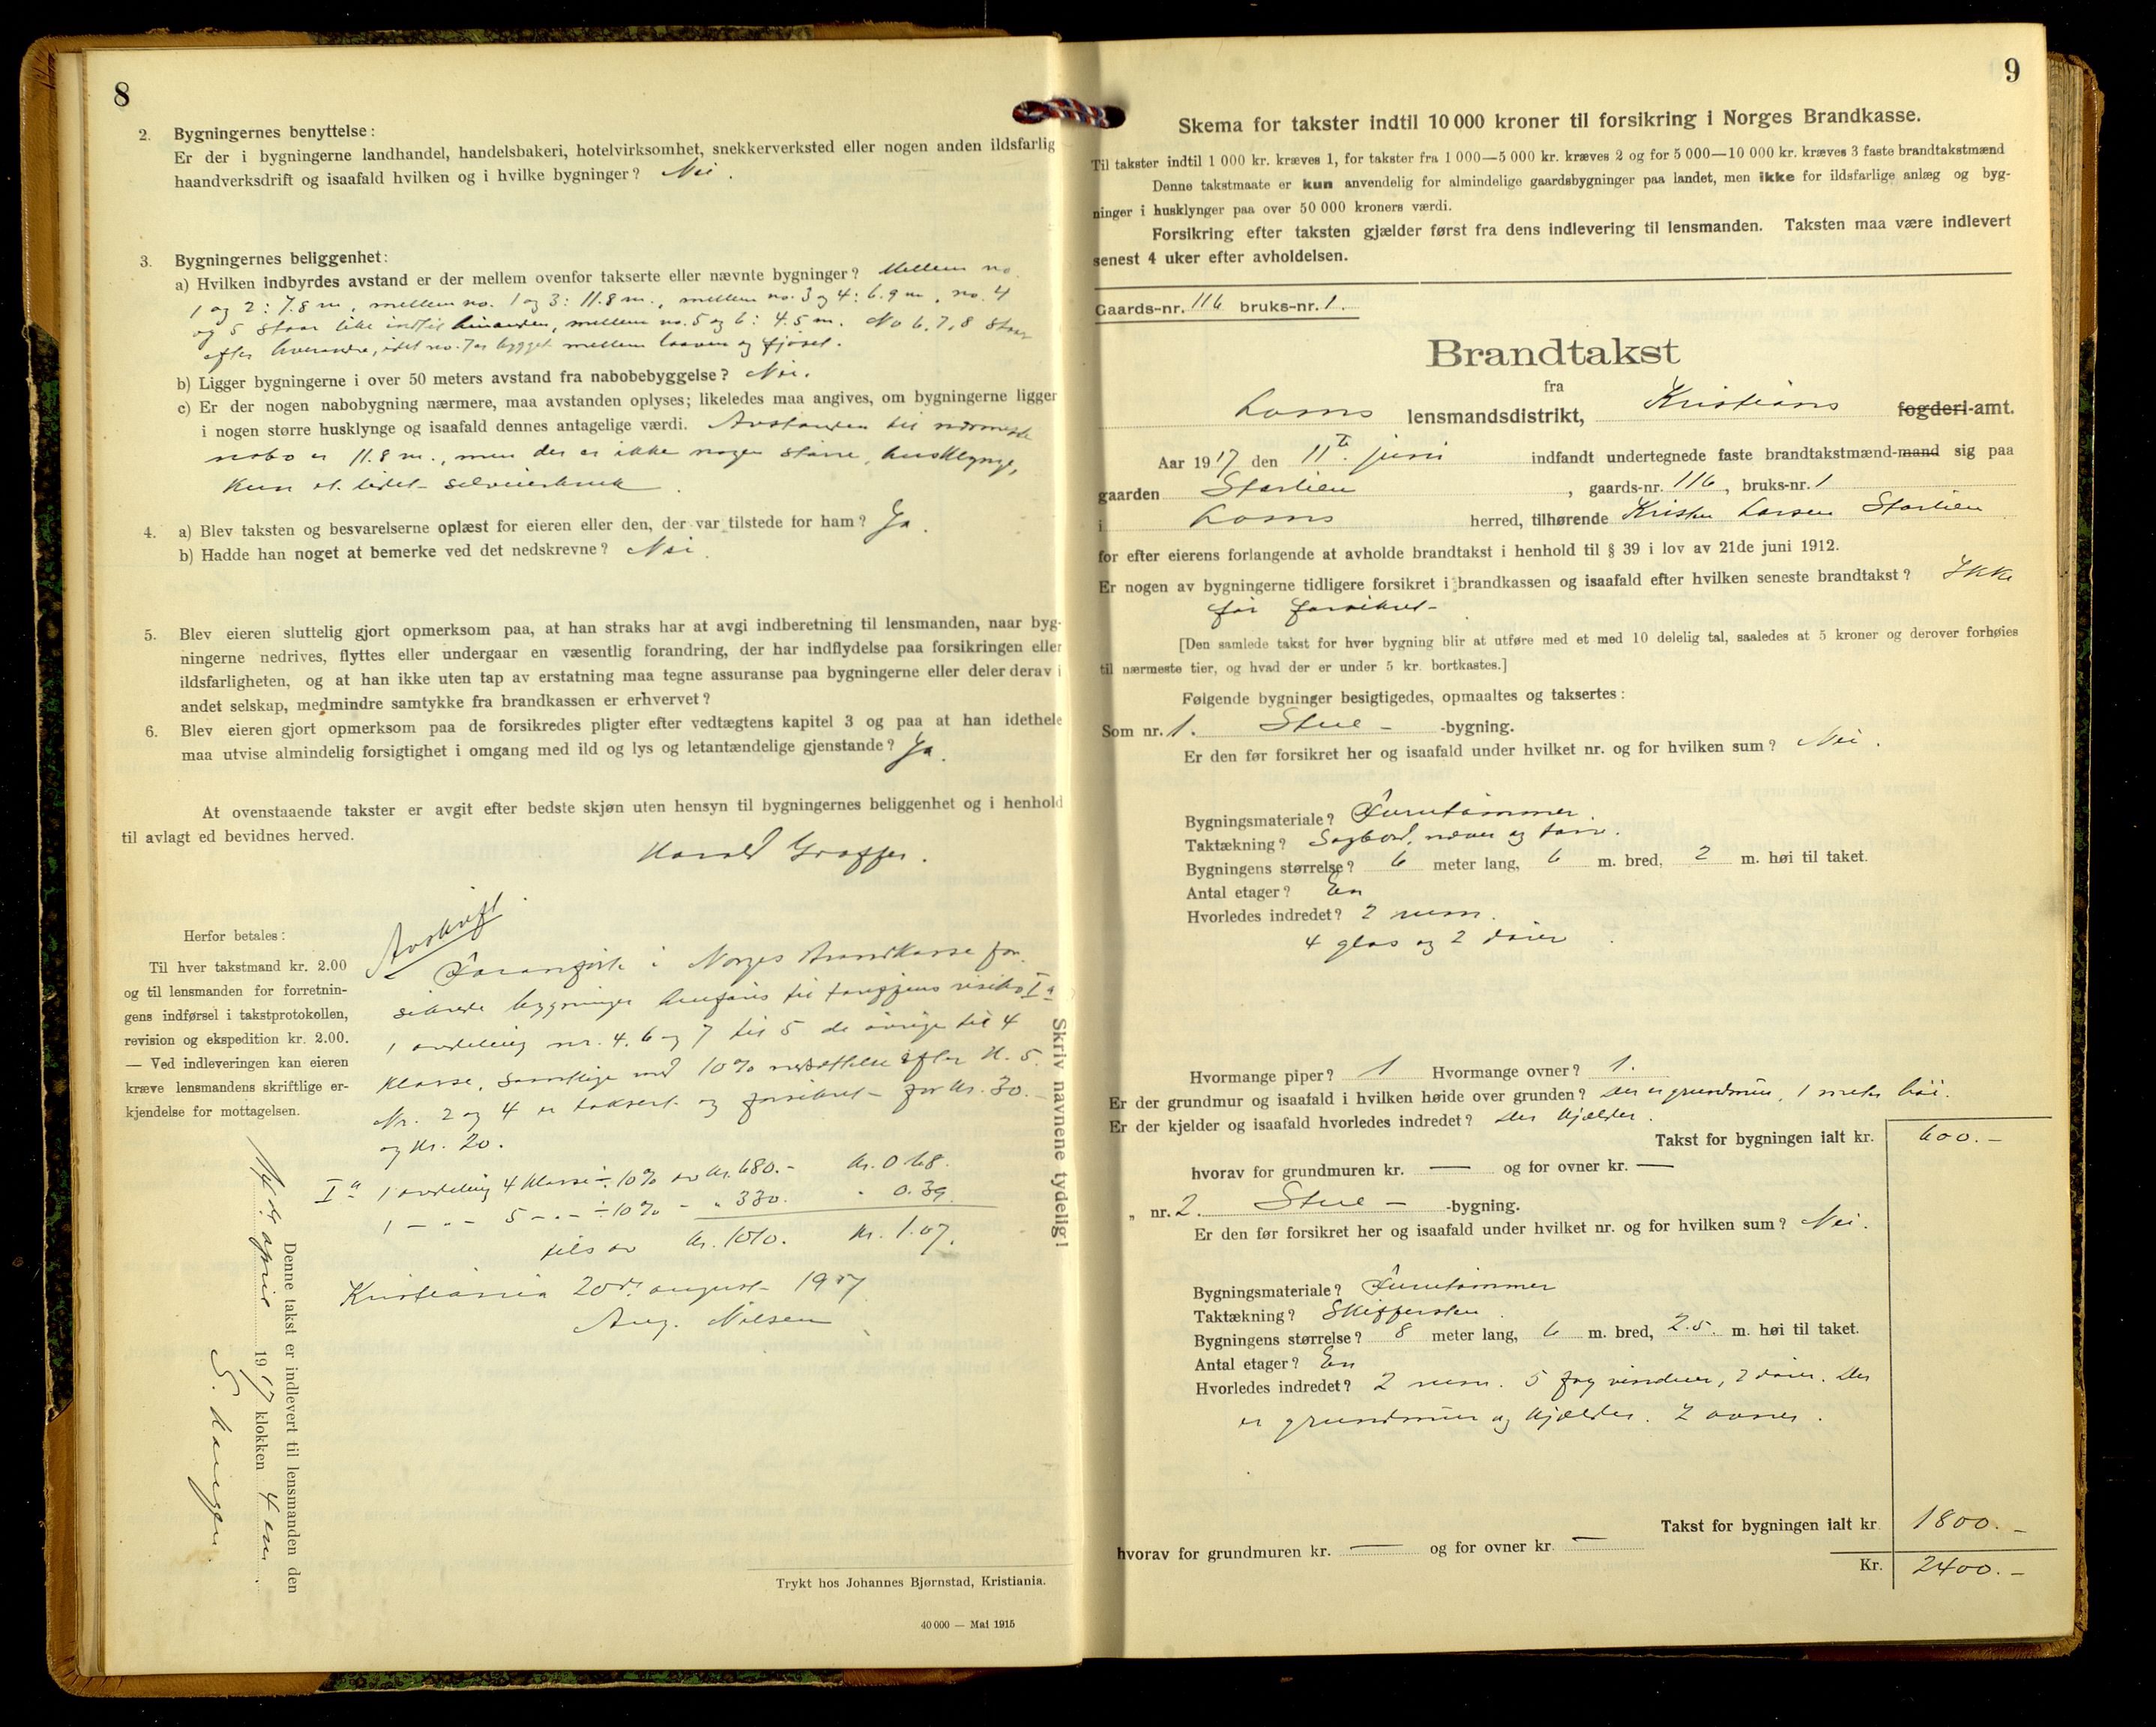 8
2. Bygningernes benyttelse:
Er der i bygningerne landhandel, handelsbakeri, hotelvirksomhet, snekkerverksted eller nogen anden ildsfarlig
haandverksdrift og isaafald hvilken og i hvilke bygninger? Nei.
3. Bygningernes beliggenhet:
a) Hvilken indbyrdes avstand er der mellem ovenfor takserte eller nævnte bygninger? Mellem no.
1 og 2: 7.8 m, mellem no. 1 og 3: 11.8 m., mellem no. 3 og 4: 6.9 m, no. 4
og 5 staar like indtil hinanden, mellem no. 5 og 6: 4.5 m. No 6, 7, 8 staar
efter hverandre, idet no. 7 er bygget mellem laaven og fjøset.
b) Ligger bygningerne i over 50 meters avstand fra nabobebyggelse? Nei.
c) Er der nogen nabobygning nærmere, maa avstanden oplyses; likeledes maa angives, om bygningerne ligger
i nogen større husklynge og isaafald dennes antagelige værdi. Avstanden til nærmeste
nabo er 11.8 m., men der er ikke nogen større husklynge,
kun et litet selveierbruk.
4. a) Blev taksten og besvarelserne oplæst for eieren eller den, der var tilstede for ham? Ja.
b) Hadde han noget at bemerke ved det nedskrevne? Nei.
5. Blev eieren sluttelig gjort opmerksom paa, at han straks har at avgi indberetning til lensmanden, naar byg-
ningerne nedrives, flyttes eller undergaar en væsentlig forandring, der har indflydelse paa forsikringen eller
ildsfarligheten, og at han ikke uten tap av erstatning maa tegne assuranse paa bygningerne eller deler derav i
andet selskap, medmindre samtykke fra brandkassen er erhvervet?
6. Blev eieren gjort opmerksom paa de forsikredes pligter efter vedtægtens kapitel 3 og paa at han idethele
maa utvise almindelig forsigtighet i omgang med ild og lys og letantændelige gjenstande? Ja.
At ovenstaaende takster er avgit efter bedste skjøn uten hensyn til bygningernes beliggenhet og i henhold
til avlagt ed bevidnes herved.
Harald Graffer.
Herfor betales:
Til hver takstmand kr. 2.00
og til lensmanden for forretnin-
gens indførsel i takstprotokollen,
revision og ekspedition kr. 2.00.
— Ved indleveringen kan eieren
kræve lensmandens skriftlige er-
kjendelse for mottagelsen.
Avskrift.
Foranførte i Norges Brandkasse for-
sikrede bygninger henføres til farefjens risiko Iª
1 avdeling nr. 4, 6 og 7 til 5 de øvrige til 4
klasse, samtlige med 10% nedsættelse efter H. 5.
Nr. 2 og 4 er taksert og forsikret for kr. 30.-
og kr. 20.
Iª 1 avdeling 4 klasse ÷ 10% av kr. 680.- kr. 0.68.
1 - „ - 5 - „ - ÷ 10% - „ 330. „ 0.39.
tils av kr. 1010. kr. 1.07.
Kristiania 20de august 1917
Aug. Nilsen
Denne takst er indlevert til lensmanden den
april 1917 klokken 4 em.
Skriv navnene tydelig!
Trykt hos Johannes Bjørnstad, Kristiania.
40 000 — Mai 1915
9
Skema for takster indtil 10 000 kroner til forsikring i Norges Brandkasse.
Til takster indtil 1 000 kr. kræves 1, for takster fra 1 000—5 000 kr. kræves 2 og for 5 000—10 000 kr. kræves 3 faste brandtakstmænd
Denne takstmaate er kun anvendelig for almindelige gaardsbygninger paa landet, men ikke for ildsfarlige anlæg og byg-
ninger i husklynger paa over 50 000 kroners værdi.
Forsikring efter taksten gjælder først fra dens indlevering til lensmanden. Taksten maa være indlevert
senest 4 uker efter avholdelsen.
Gaards-nr. 116 bruks-nr. 1.
Brandtakst
fra
Loms lensmandsdistrikt, Kristians fogderi-amt.
Aar 1917 den 11te juni indfandt undertegnede faste brandtakstmænd-mand sig paa
gaarden Storlien, gaards-nr. 116, bruks-nr. 1
i Loms herred, tilhørende Kristen Larsen Storlien
for efter eierens forlangende at avholde brandtakst i henhold til § 39 i lov av 21de juni 1912.
Er nogen av bygningerne tidligere forsikret i brandkassen og isaafald efter hvilken seneste brandtakst? Ikke
før forsikret
[Den samlede takst for hver bygning blir at utføre med et med 10 delelig tal, saaledes at 5 kroner og derover forhøies
til nærmeste tier, og hvad der er under 5 kr. bortkastes.]
Følgende bygninger besigtigedes, opmaaltes og taksertes:
Som nr. 1. Stue -bygning.
Er den før forsikret her og isaafald under hvilket nr. og for hvilken sum? Nei.
Bygningsmateriale? Furutømmer.
Taktækning? Sagbord, næver og torv.
Bygningens størrelse? 6 meter lang, 6 m. bred, 2 m. høi til taket.
Antal etager? En
Hvorledes indredet? 2 rum.
4 glas og 2 dører.
Hvormange piper? 1 Hvormange ovner? 1.
Er der grundmur og isaafald i hvilken høide over grunden? Der er grundmur, 1 meter høi.
Er der kjelder og isaafald hvorledes indredet? Der kjælder.
Takst for bygningen ialt kr. 600.-
hvorav for grundmuren kr. — og for ovner kr. —
„ nr. 2. Stue -bygning.
Er den før forsikret her og isaafald under hvilket nr. og for hvilken sum? Nei.
Bygningsmateriale? Furutømmer
Taktækning? Skiffersten.
Bygningens størrelse? 8 meter lang, 6 m. bred, 2.5. m. høi til taket.
Antal etager? En
Hvorledes indredet? 2 rum. 5 fag vinduer, 2 dører. Der
er grundmur og kjælder. 2 ovner.
Takst for bygningen ialt kr. 1800.-
hvorav for grundmuren kr. — og for ovner kr. —
Kr. 2400.-